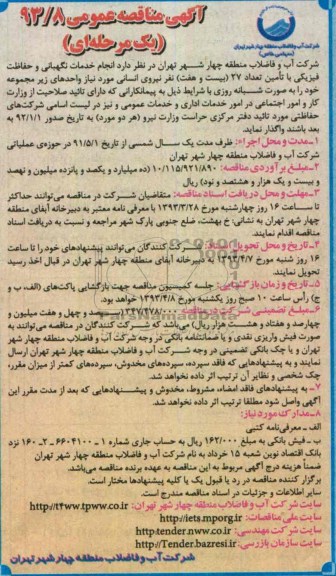 آگهی مناقصه عمومی ۹۳/۸
(یک مرحله‌ای)
شرکت آب و فاضلاب منطقه چهار شهر تهران
(سهامی خاص)
شرکت آب و فاضلاب منطقه چهار شهر تهران در نظر دارد انجام خدمات نگهبانی و حفاظت
فیزیکی با تأمین تعداد ۲۷ (بیست و هفت) نفر نیروی انسانی مورد نیاز واحدهای زیر مجموعه
خود را به صورت شبانه روزی با شرایط ذیل به پیمانکارانی که دارای تائید صلاحیت از وزارت
کار و امور اجتماعی در امور خدمات اداری و خدمات عمومی و نیز در لیست اسامی شرکت‌های
حفاظتی مورد تائید دفتر مرکزی حراست وزارت نیرو (هر دو مورد) به تاریخ صدور ۹۲/۱/۱ به
بعد باشند واگذار نماید.
۱- مدت و محل اجراء: ظرف مدت یک سال شمسی از تاریخ ۹۱/۵/۱ در حوزه‌ی عملیاتی
شرکت آب و فاضلاب منطقه چهار شهر تهران
۲- مبلغ برآوردی مناقصه: ۱۰/۱۱۵/۹۲۱/۸۹۰ (ده میلیارد و یکصد و پانزده میلیون و نهصد
و بیست و یک هزار و هشتصد و نود) ریال
۳- مهلت و محل دریافت اسناد مناقصه: متقاضیان شرکت در مناقصه می‌توانند حداکثر
تا ساعت ۱۶ روز چهارشنبه مورخ ۱۳۹۳/۳/۲۸ با معرفی نامه معتبر به دبیرخانه آبفای منطقه
چهار شهر تهران به نشانی: خ بهشت، ضلع جنوبی پارک شهر مراجعه و نسبت به دریافت اسناد
مناقصه اقدام نمایند.
۴- تاریخ و محل تحویل کنندگان می‌توانند پیشنهادهای خود را تا ساعت
۱۶ روز شنبه مورخ ۱۳۹۳/۴/۷ به دبیرخانه آبفای منطقه چهار شهر تهران در قبال اخذ رسید
تحویل نمایند.
۵- تاریخ و زمان بازگشایی: جلسه کمیسیون مناقصه جهت بازگشایی پاکت‌های (الف، ب و
ج) رأس ساعت ۱۰ صبح روز یکشنبه مورخ ۱۳۹۳/۴/۸ خواهد بود.
۶- مبلغ تضمینی شرکت در مناقصه: ۳۴۷/۴۷۸/۰۰۰ (سیصد و چهل و هفت میلیون و
چهارصد و هفتاد و هشت هزار ریال) می‌باشد که شرکت کنندگان در مناقصه می‌توانند به
صورت فیش واریزی نقدی و یا ضمانتنامه بانکی در وجه شرکت آب و فاضلاب منطقه چهار شهر
تهران و یا چک بانکی تضمینی در وجه شرکت آب و فاضلاب منطقه چهار شهر تهران ارسال
نمایند و به پیشنهادهایی که فاقد سپرده، سپرده‌های مخدوش، سپرده‌های کمتر از میزان مقرر،
چک شخصی و نظایر آن ترتیب اثر داده نخواهد شد.
۷- به پیشنهادهای فاقد امضاء، مشروط، مخدوش و پیشنهادهایی که بعد از مدت مقرر این
آگهی واصل شود مطلقا ترتیب اثر داده نخواهد شد.
۸- مدارک مورد نیاز:
الف - معرفی‌نامه کتبی
ب - فیش بانکی به مبلغ ۱۶۲/۰۰۰ ریال به حساب جاری شماره ۱ - ۶۶۰۴۱۰۰ - ۲ - ۱۶۰ نزد
بانک اقتصاد نوین شعبه ۱۵ خرداد به نام شرکت آب و فاضلاب منطقه چهار شهر تهران
ضمناً هزینه درج آگهی مربوط به این مناقصه به عهده برنده مناقصه می‌باشد.
برگزار کننده مناقصه در رد یا قبول یک یا کلیه پیشنهادها مختار است.
سایر اطلاعات و جزئیات در اسناد مناقصه مندرج است.
سایت شرکت آب و فاضلاب منطقه چهار شهر تهران: http://t4ww.tpww.co.ir
سایت ملی مناقصات: http://iets.mporg.ir
سایت شرکت مهندسی: http:tender.nww.co.ir
سایت سازمان بازرسی: http://Tender.bazresi.ir
شرکت آب و فاضلاب منطقه چهار شهر تهران